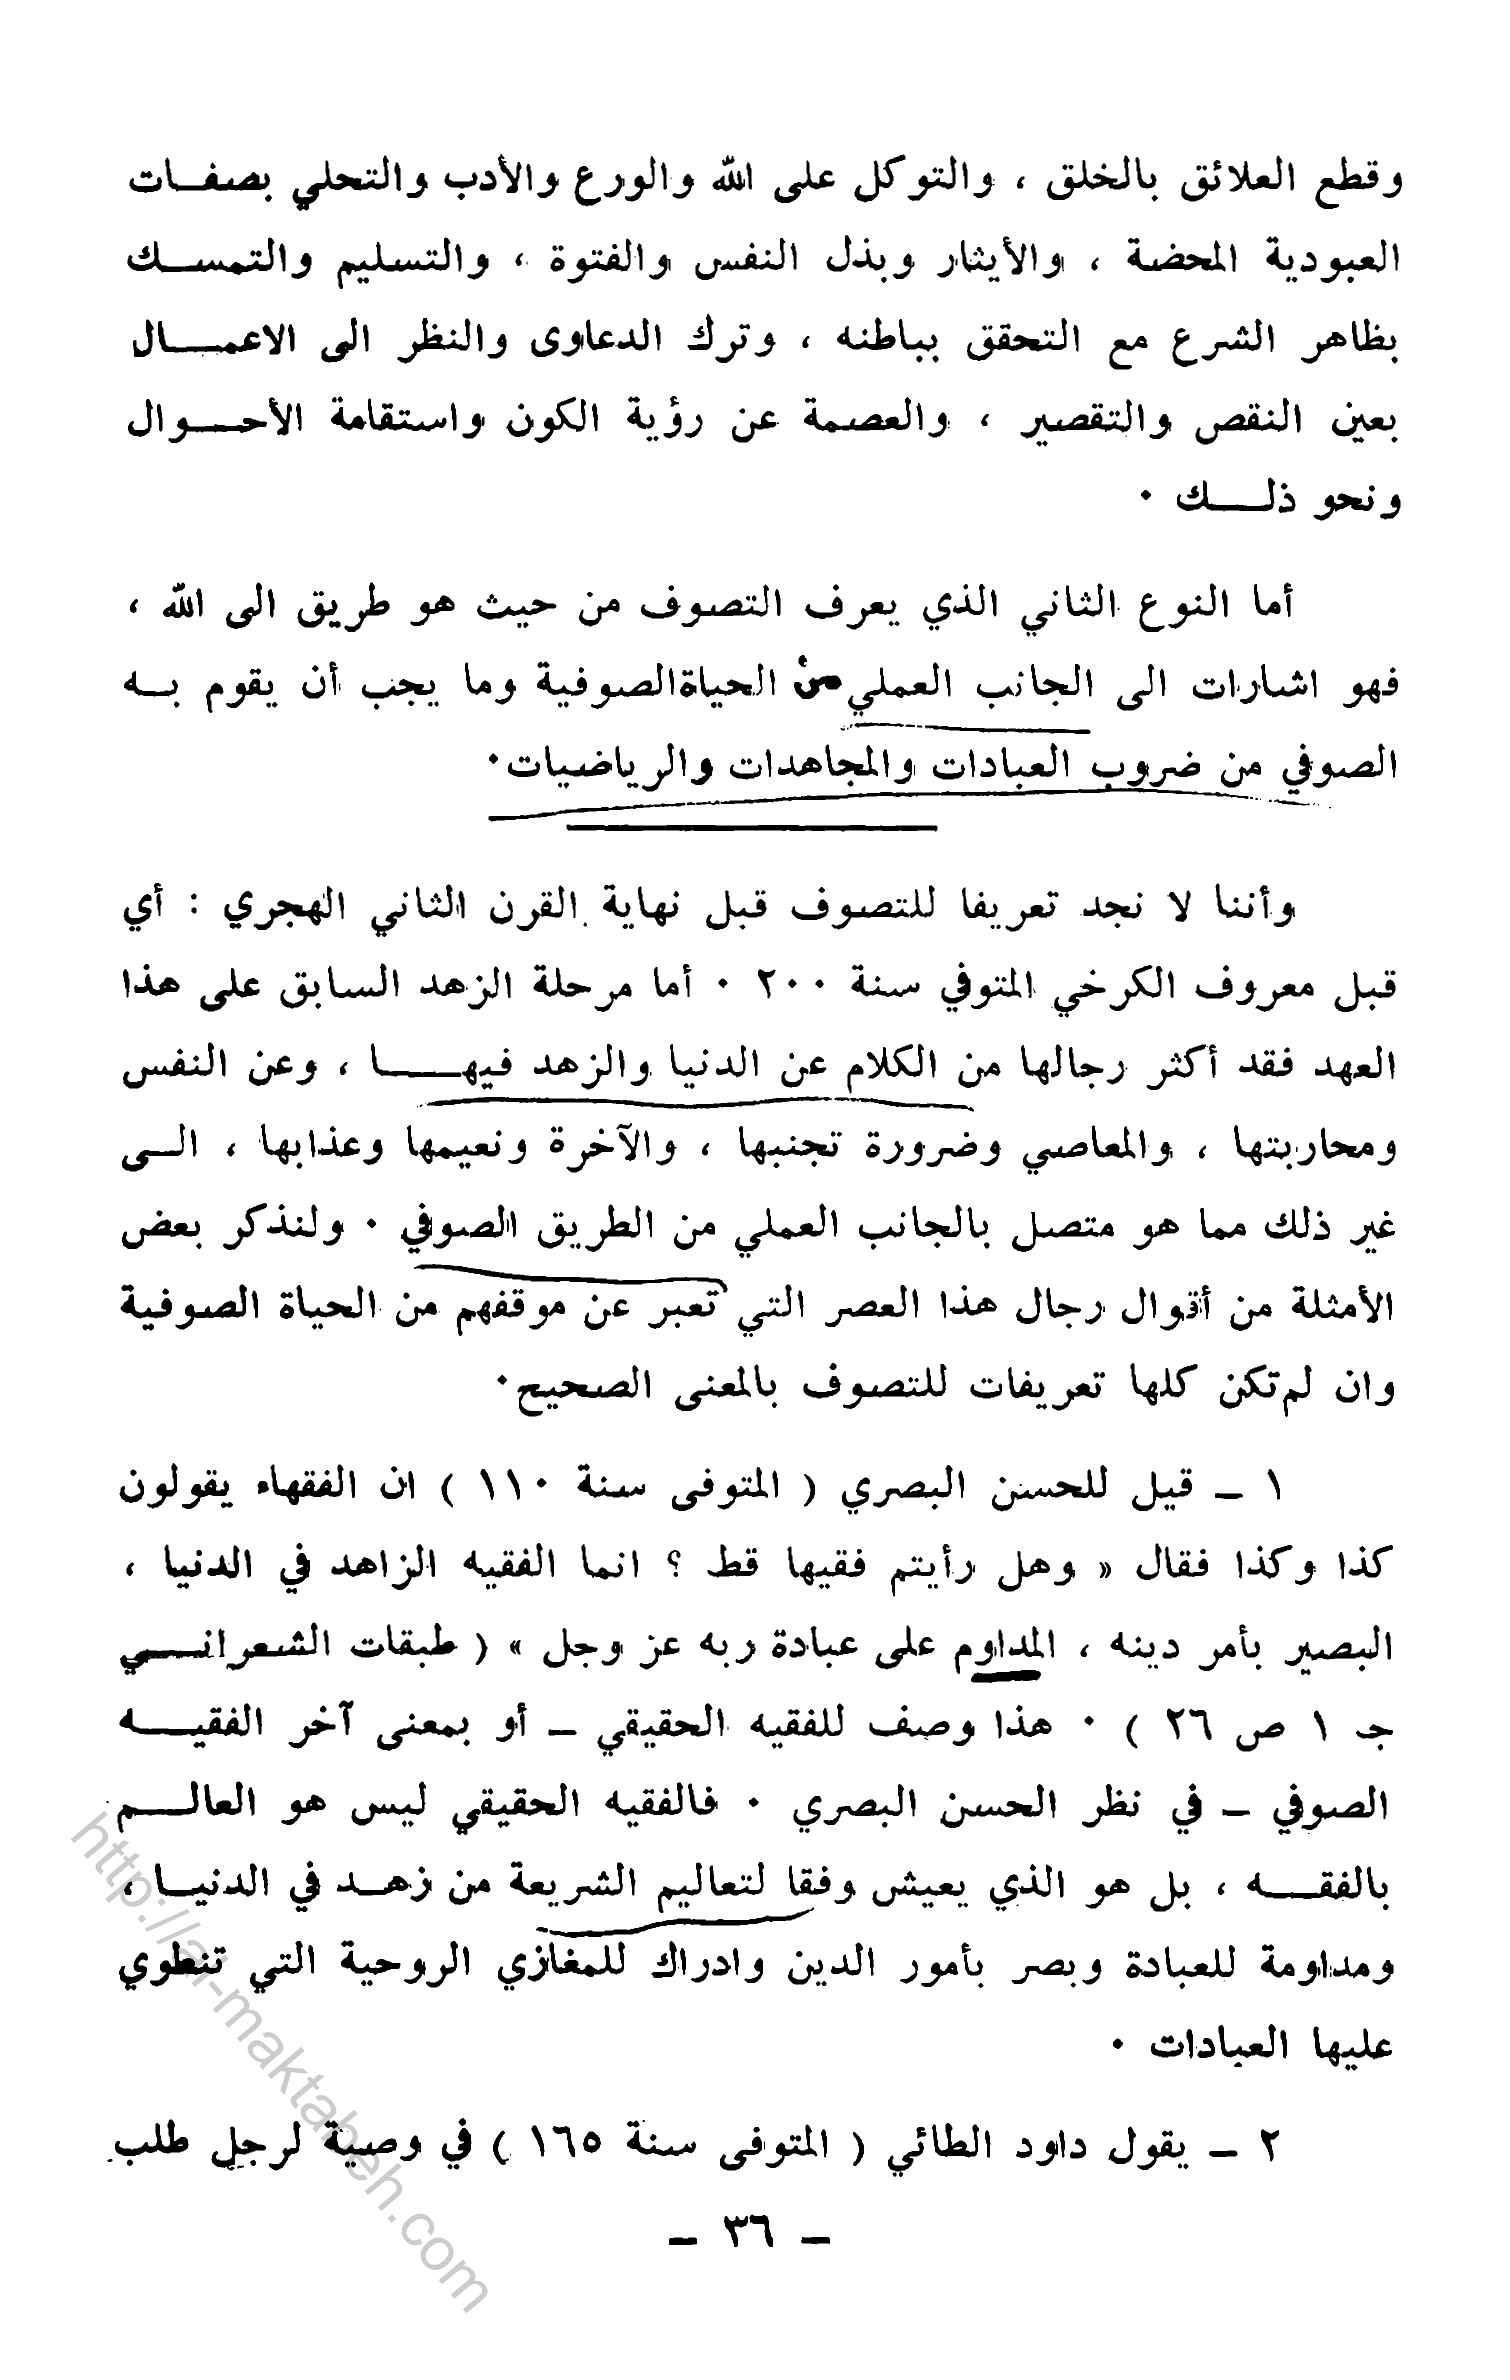 وقطع العلائق بالخلق ، والتوكل على الله والورع والأدب والتحلي بصفات
العبودية المحضة ، والأيثار وبذل النفس والفتوة ، والتسليم والتمسك
بظاهر الشرع مع التحقق بباطنه ، وترك الدعاوى والنظر الى الاعمال
بعين النقص والتقصير ، والعصمة عن رؤية الكون واستقامة الأحوال
ونحو ذلك ٠
أما النوع الثاني الذي يعرف التصوف من حيث هو طريق الى الله ،
فهو اشارات الى الجانب العملي من الحياة الصوفية وما يجب أن يقوم به
الصوفي من ضروب العبادات والمجاهدات والرياضيات ٠
وأننا لا نجد تعريفا للتصوف قبل نهاية القرن الثاني الهجري : أي
قبل معروف الكرخي المتوفي سنة ٢٠٠ ٠ أما مرحلة الزهد السابق على هذا
العهد فقد أكثر رجالها من الكلام عن الدنيا والزهد فيها ، وعن النفس
ومحاربتها ، والمعاصي وضرورة تجنبها ، والآخرة ونعيمها وعذابها ، الى
غير ذلك مما هو متصل بالجانب العملي من الطريق الصوفي ٠ ولنذكر بعض
الأمثلة من أقوال رجال هذا العصر التي تعبر عن موقفهم من الحياة الصوفية
وان لم تكن كلها تعريفات للتصوف بالمعنى الصحيح ٠
١ – قيل للحسن البصري ( المتوفى سنة ١١٠ ) ان الفقهاء يقولون
كذا وكذا فقال « وهل رأيتم فقيها قط ؟ انما الفقيه الزاهد في الدنيا ،
البصير بأمر دينه ، المداوم على عبادة ربه عز وجل » ( طبقات الشعراني
جـ ١ ص ٢٦ ) ٠ هذا وصف للفقيه الحقيقي – أو بمعنى آخر الفقيه
الصوفي – في نظر الحسن البصري ٠ فالفقيه الحقيقي ليس هو العالم
بالفقه ، بل هو الذي يعيش وفقا لتعاليم الشريعة من زهد في الدنيا ،
ومداومة للعبادة وبصر بأمور الدين وادراك للمغازي الروحية التي تنطوي
عليها العبادات ٠
٢ – يقول داود الطائي ( المتوفى سنة ١٦٥ ) في وصية لرجل طلب
– ٣٦ –
http://al-maktabeh.com